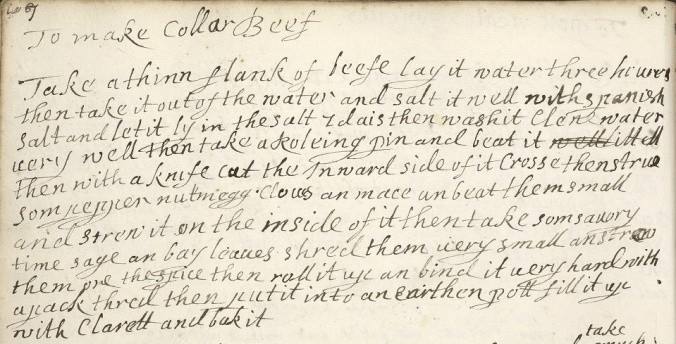 To make Collar Beef
Take a thinn flank of beefe lay it water three houres
then take it out of the water and salt it well with spanish
salt and let it ly in the salt 7 dais then wash it Clene water
very well then take a roleing pin and beat it well littell
then with a knife cut the Inward side of it Crosse then strue
som pepper nutmegg Clows an mace an beat them small
and strew it on the inside of it then take som savory
time sage an bay leaves shred them very small an strew
them one the spice then roll it up an bind it very hard with
a pack thred then put it into an earthen pott fill it up
with Clarett and bak it
take